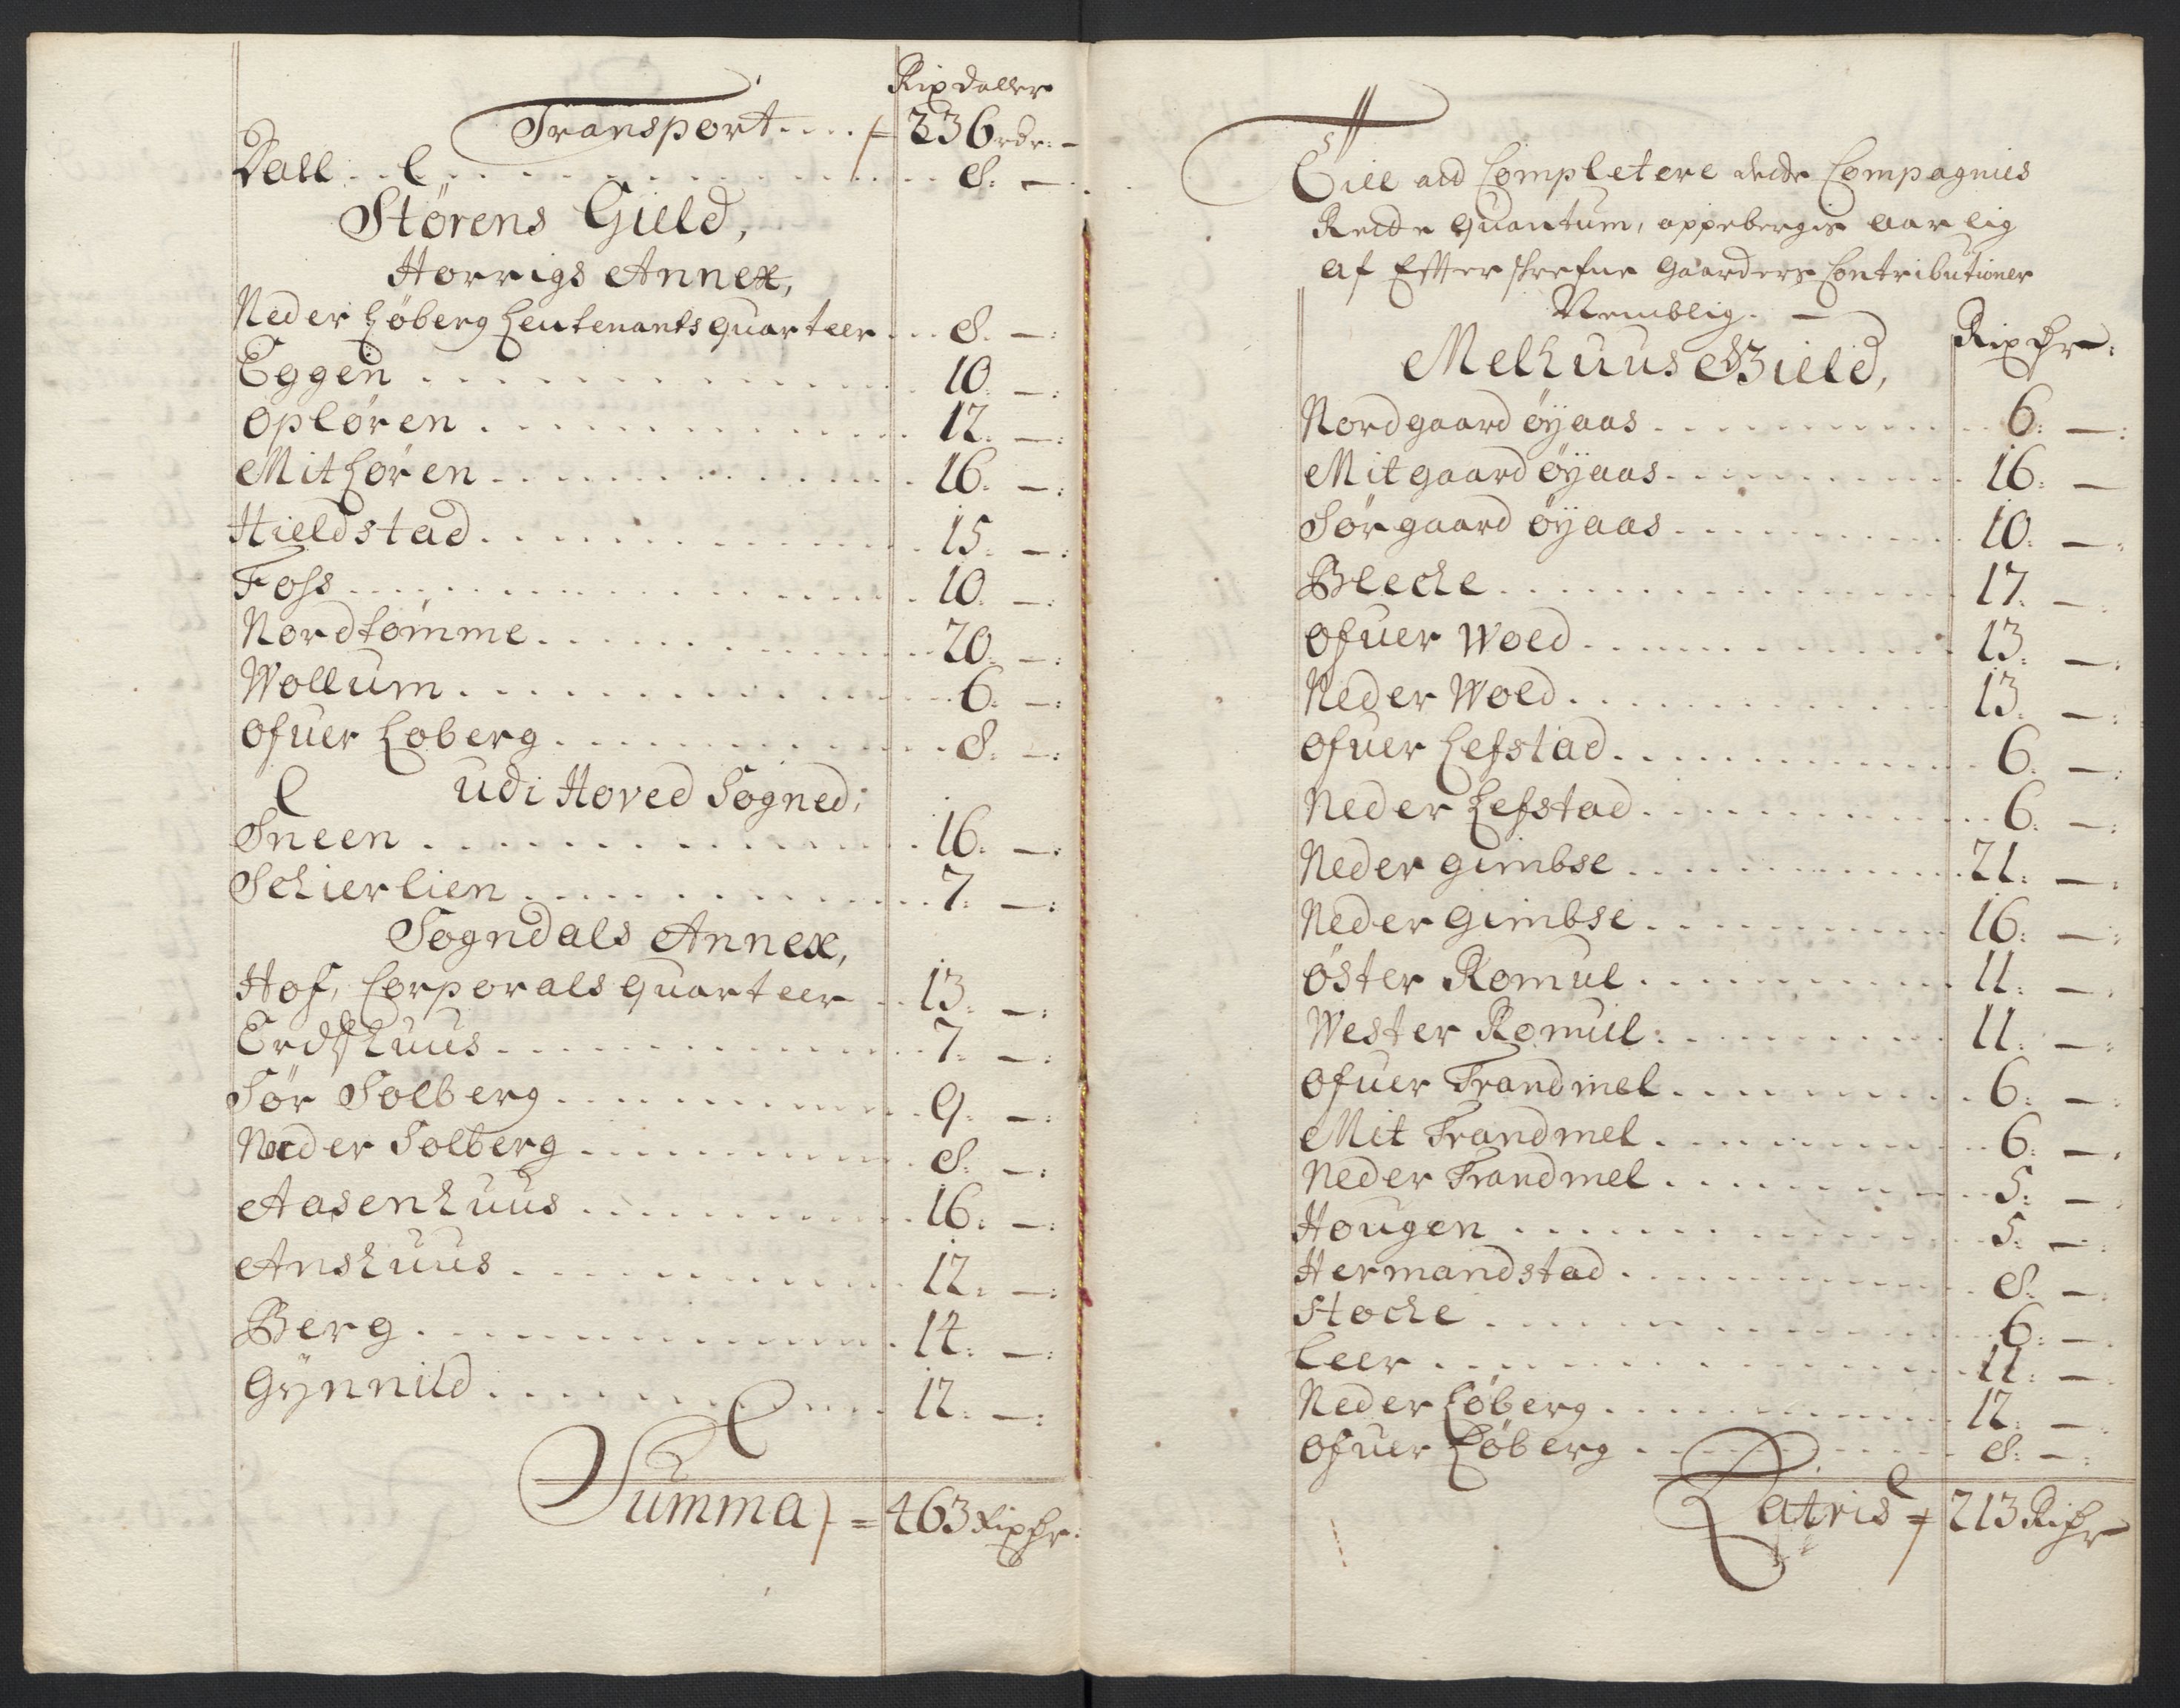 Rixdaller
Transport .... 236 rdr: -
Dall .. 8. -
Störens Gield,
Horrigs Annex,
Neder Löberg Leutenants quarteer ... 8. -:
Eggen ... 10. -:
Oplören ... 12. -:
Mitlören ... 16. -:
Hieldstad ... 15. -:
Foss ... 10. -:
Nordtömme ... 20. -:
Wollum ... 6. -:
Ofuer Löberg ... 8. -:
Udi Hoved Sogned;
Sneen ... 16. -:
Schierlien ... 7. -:
Sogndals Annex,
Hof, Corporals quarteer .. 13. -:
Erdshuus ... 7. -:
Sör Solberg ... 9. -:
Neder Solberg ... 8. -:
Aasenhuus ... 16. -:
Anshuus ... 12. -:
Berg ... 14. -:
Gynnild ... 12. -:
Summa = 463 Rixdr.
Till ad Completere dette Compagnies
Rette Quantum, oppebergis aarlig
af Effterskrefne Gaarders Contributioner
Nemblig. -
Melhuus Gield,
Rixdr:
Nordgaard öyaas ... 6: -:
Mitgaard öyaas ... 16: -
Sörgaard öyaas ... 10: -:
Bleche ... 17. -:
Ofuer Wold ... 13. -:
Neder Wold ... 13. -:
Ofuer Lefstad ... 6. -:
Neder Lefstad ... 6. -:
Neder gimbse ... 21. -:
Neder gimbse ... 16: -:
Öster Romul ... 11. -:
Wester Romul: ... 11. -:
Ofuer Trandmel ... 6: -:
Mit Trandmel ... 6: -:
Neder Trandmel ... 5: -:
Hougen ... 5: -:
Hermandstad ... 8. -:
Stoche ... 6: -
Leer ... 11: -
Neder Löberg ... 12: -
Ofuer Löberg ... 8: -:
Latris = 213 Rixdr